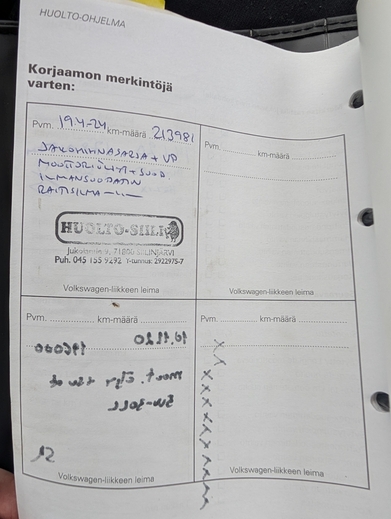 HUOLTO-OHJELMA
Korjaamon merkintöjä
varten:
Pvm. 19.4-24 km-määrä 213981
JAKOHIHNASARJA + VP
MOOTTORIÖLJYT + SUOD.
ILMANSUODATIN
RAITISILMA —"—
HUOLTO-SIILI
Jukolantie, 71800 SIILINJÄRVI
Puh. 045 155 9292 Y-tunnus: 2922975-7
Volkswagen-liikkeen leima
Pvm. km-määrä
Volkswagen-liikkeen leima
Pvm. km-määrä
Volkswagen-liikkeen leima
Pvm. km-määrä
Volkswagen-liikkeen leima